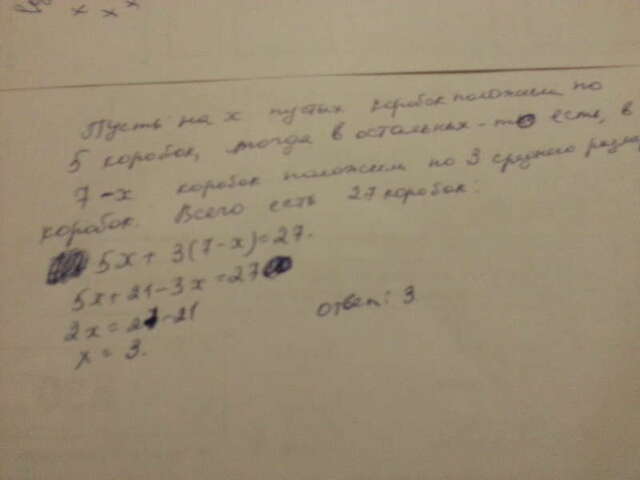 х х х
Пусть на х пустых коробок положили по
5 коробок, тогда в остальных - то есть, в
7-х коробок положили по 3 среднего
коробок. Всего есть 27 коробок:
5х + 3(7-х)=27.
5х+21-3х=27
2х=27-21
х = 3.
ответ: 3